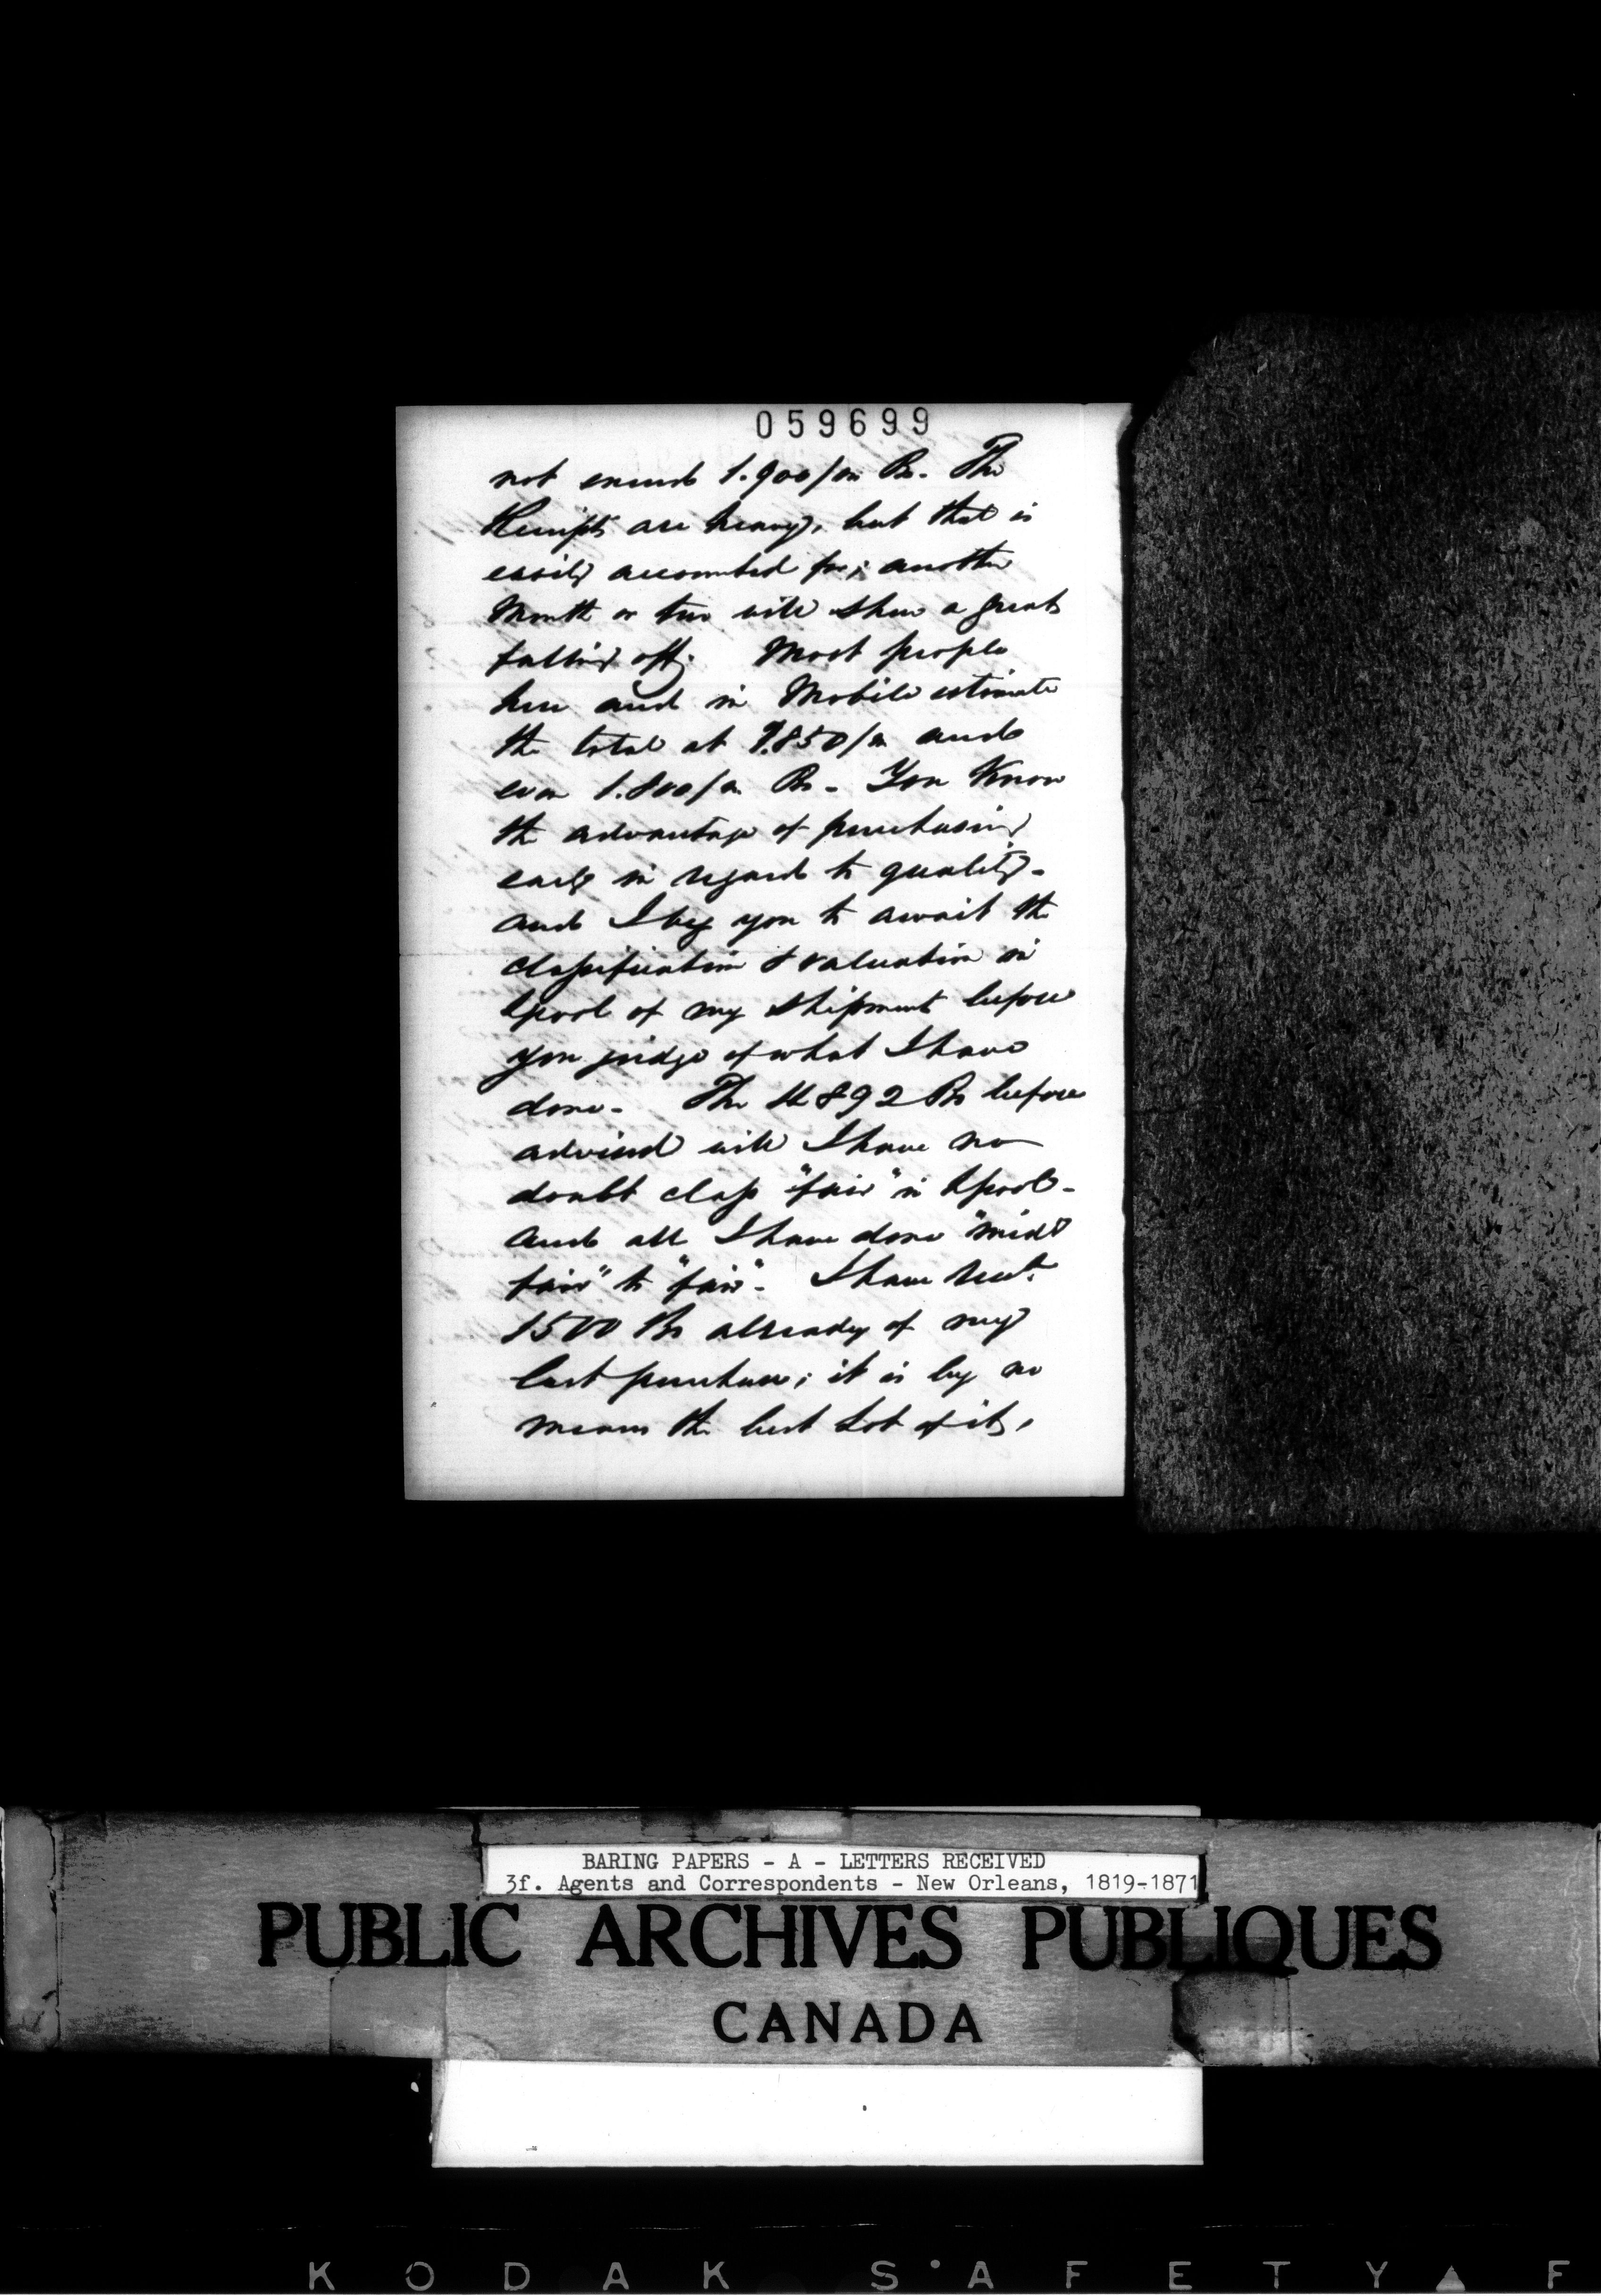 059699
not exceed 1.900/m Bs. The
Receipts are heavy, but that is
easily accounted for; another
Month or two will shew a great
falling off. Most people
here and in Mobile estimate
the total at 1.850/m and
even 1.800/m Bs - You Know
the advantage of purchasing
early in regard to quality -
and I beg you to await the
classification & valuation in
Lpool of my shipment before
you judge of what I have
done - The 4892 Bs before
advised will I have no
doubt class "fair" in Lpool -
and all I have done "midd
fair" to "fair". I have recd.
1500 Bs already of my
last purchase; it is by no
means the best Lot of it,
BARING PAPERS - A - LETTERS RECEIVED
3f. Agents and Correspondents - New Orleans, 1819-1871
PUBLIC ARCHIVES PUBLIQUES
CANADA
KODAK SAFETY F